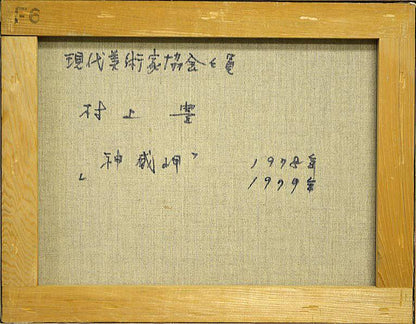 F6
現代美術家協会々員
村上 豊
「神威岬」
1978年
1979年